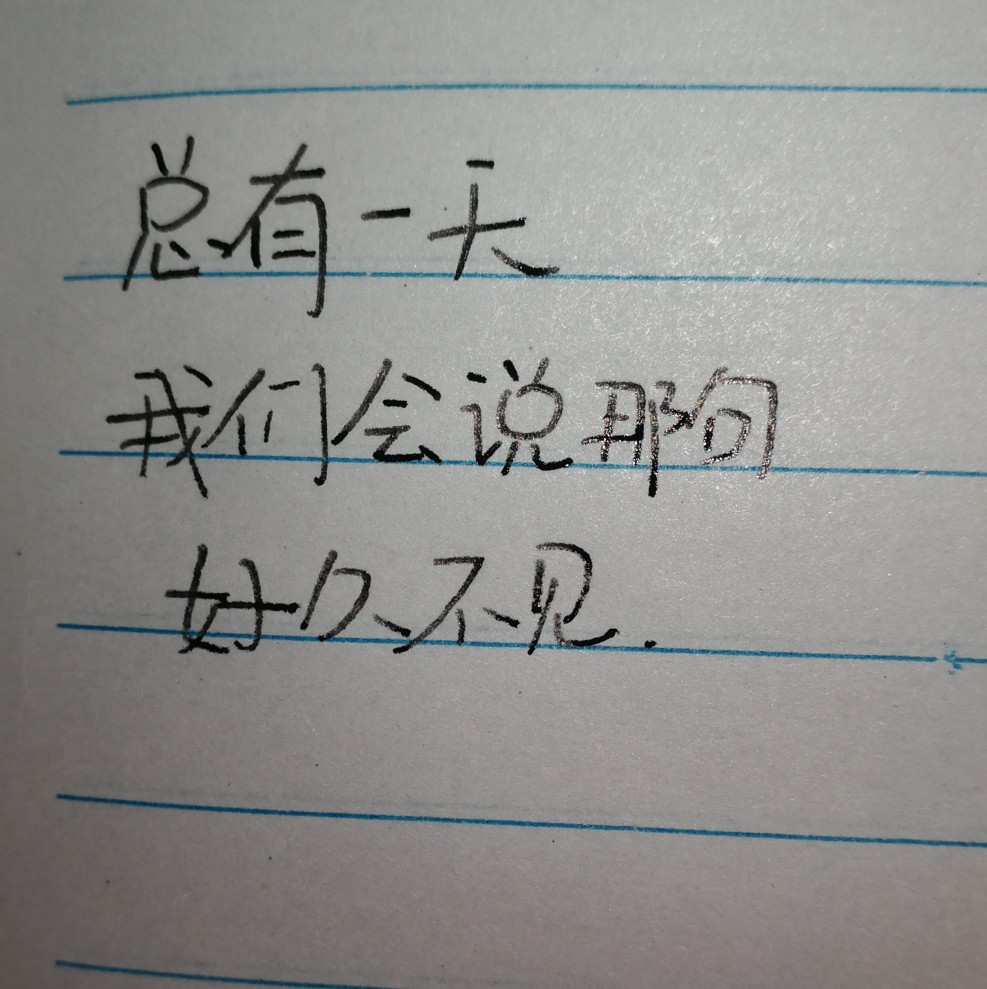 总有一天
我们会说那句
好久不见.